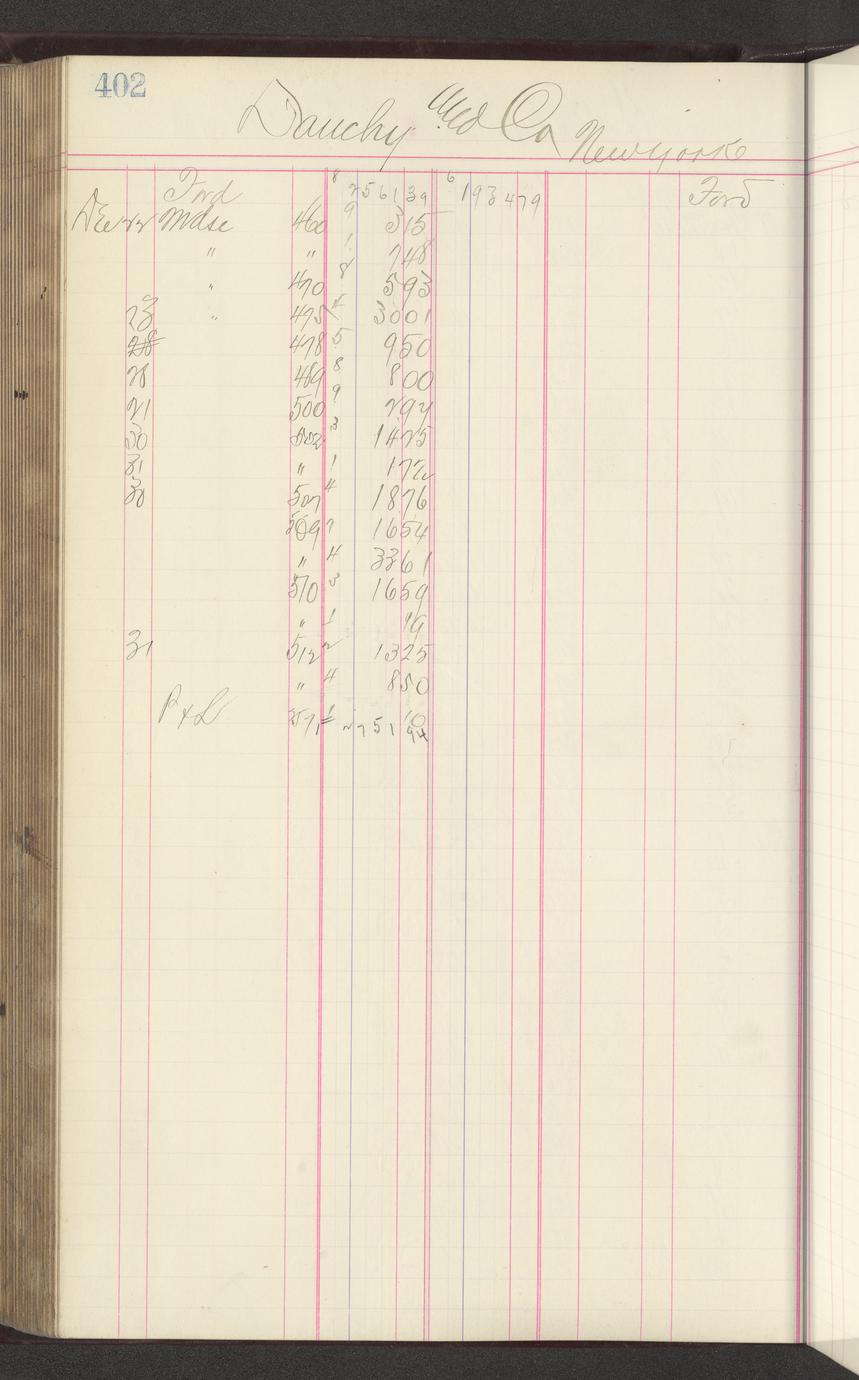 402
Dauchy Med Co New York
Ford 8 2561 39 6 1934 79 Ford
Dec 22 Mdse 460 9 315
" " 1 748
" 470 8 593
23 " 475 4 3001
478 5 950
28 489 8 800
500 9 294
30 502 3 1425
31 " 1 172
507 4 1876
509 1654
" 4 3361
510 3 1659
" 1 19
31 512 2 1325
" 4 850
P & L 571 1 10
2751 94